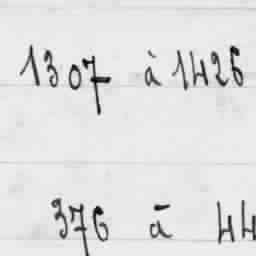 1307 à 1426
376 à 44